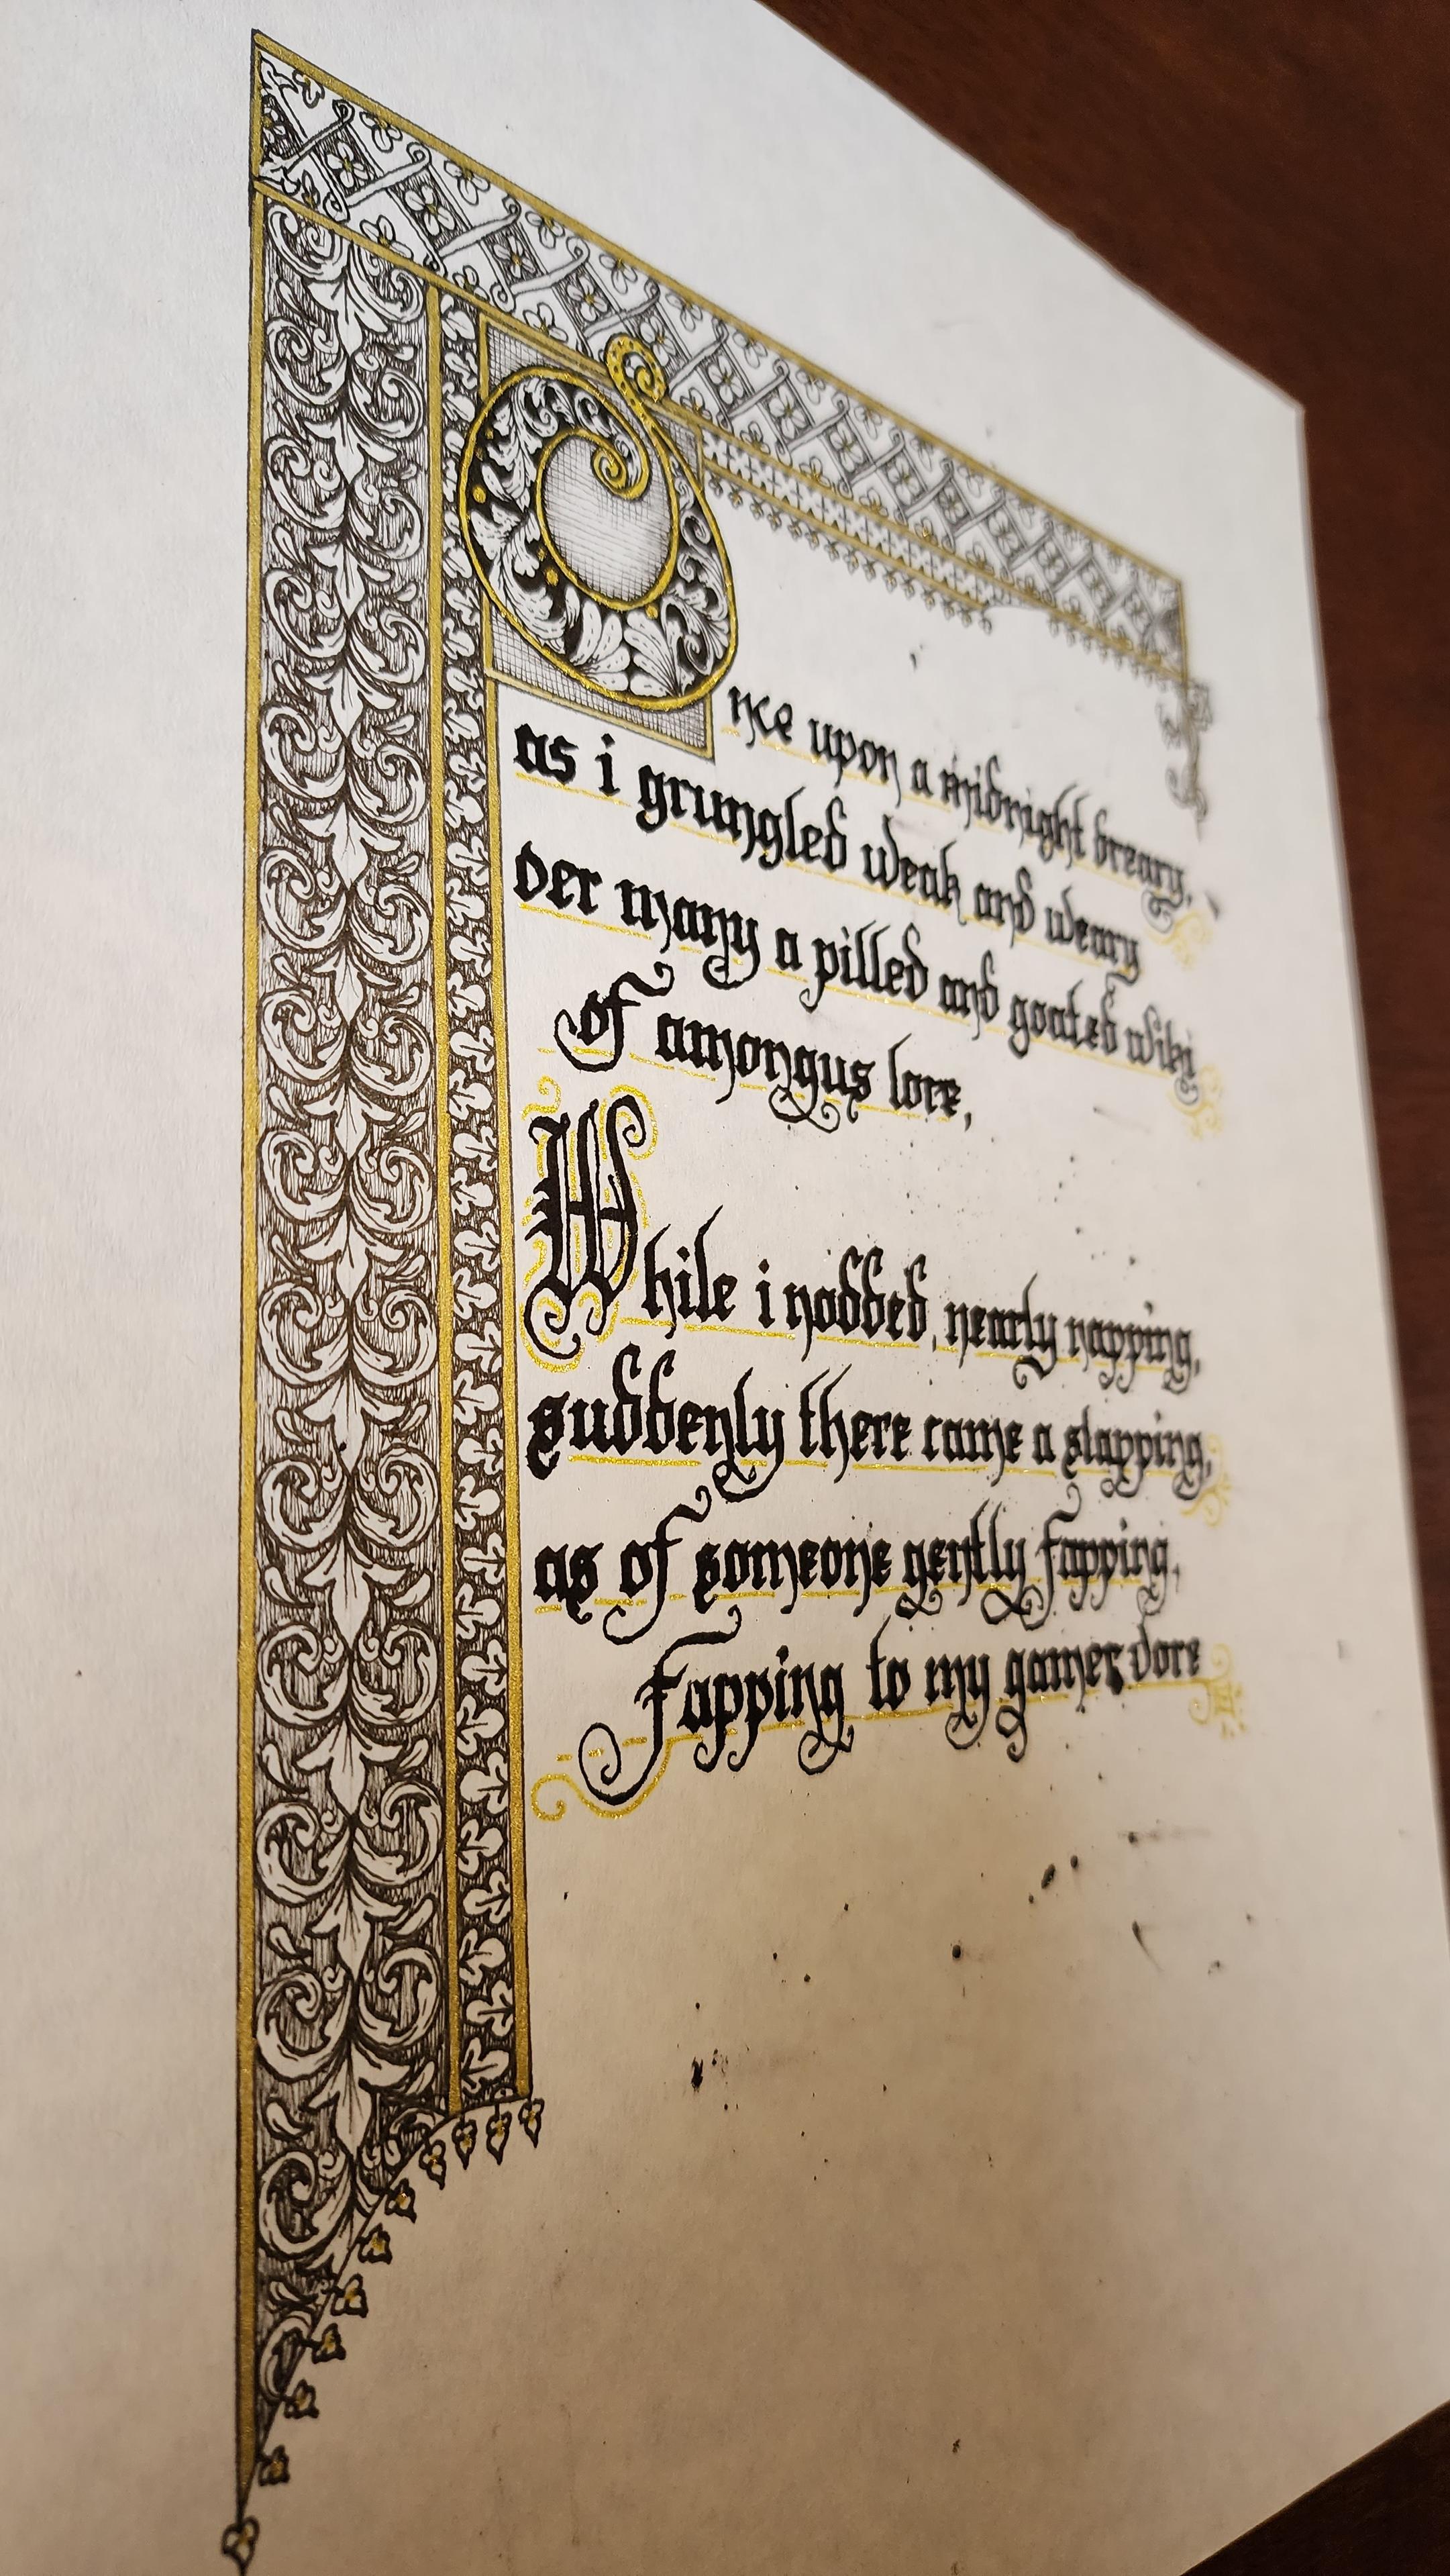 Once upon a midnight dreary,
as i grungled weak and weary
over many a pilled and goated wiki
of amongus lore,
While i nodded, nearly napping,
suddenly there came a slapping,
as of someone gently fapping,
Fapping to my gamer dore